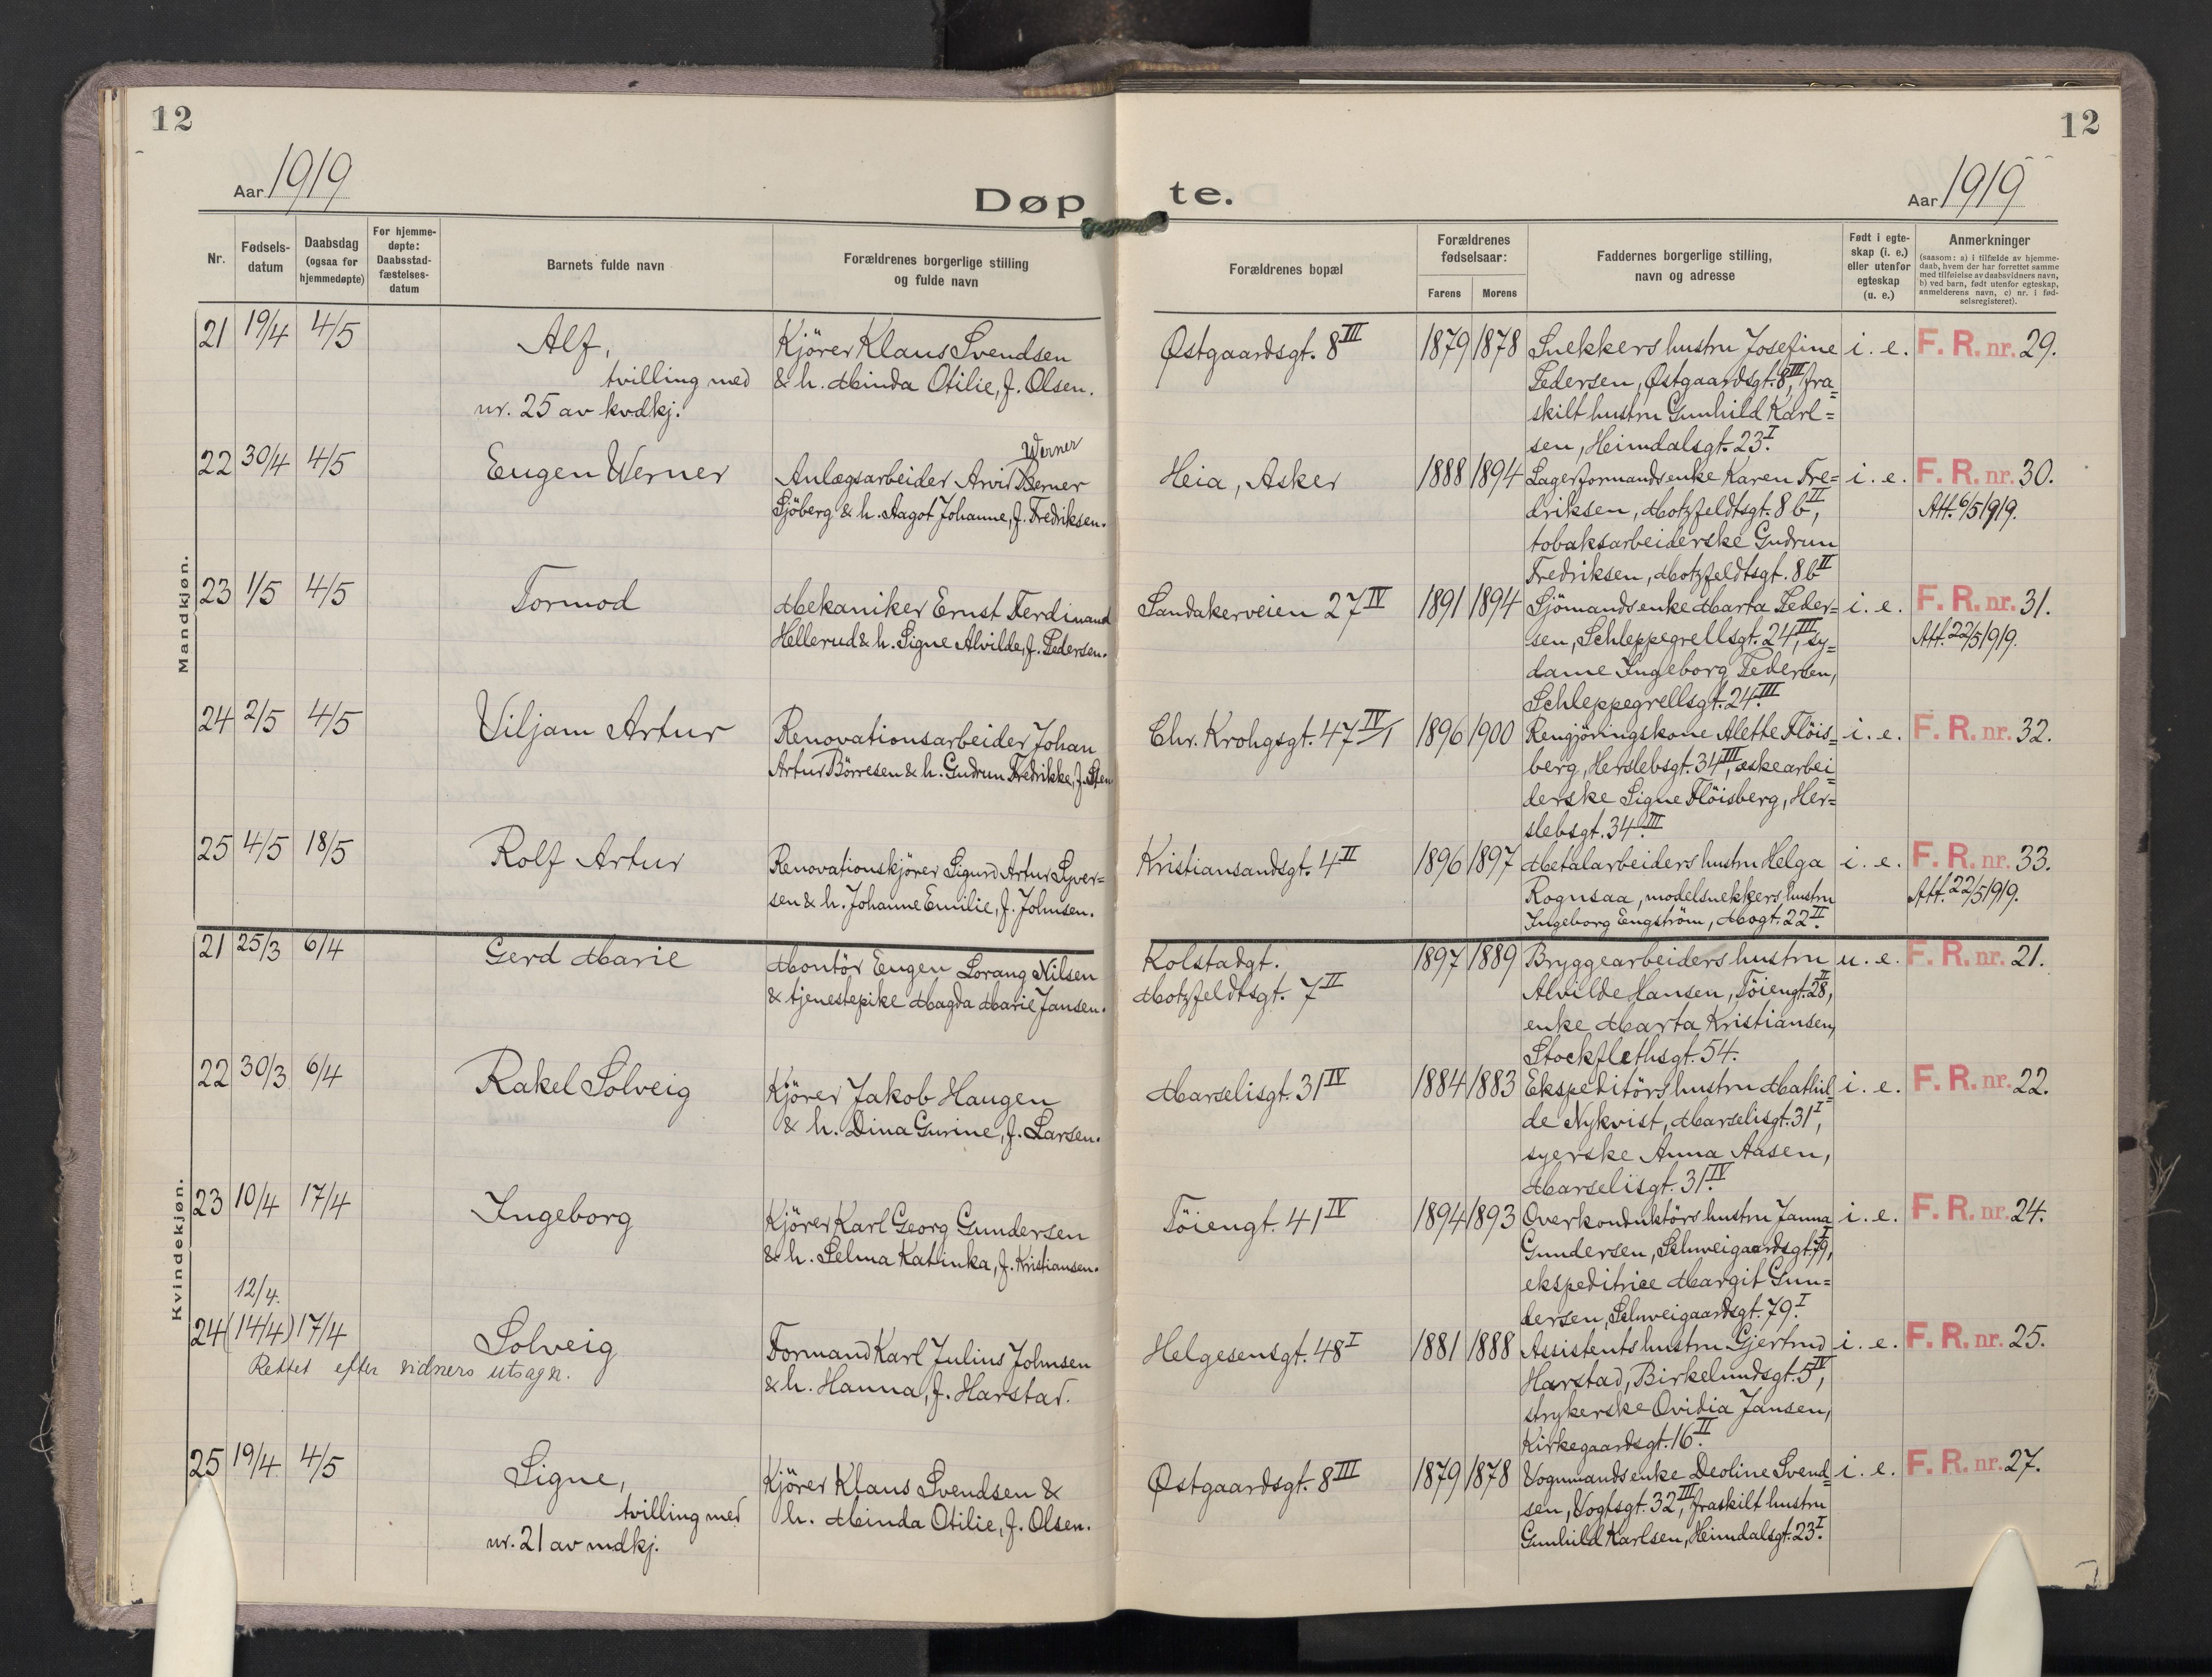 12
12
Aar 1919
Døpte.
Aar 1919
Nr.
Fødsels-
datum
Daabsdag
(ogsaa for
hjemmedøpte)
For hjemme-
døpte:
Daabsstad-
fæstelses-
datum
Barnets fulde navn
Forældrenes borgerlige stilling
og fulde navn
Forældrenes bopæl
Forældrenes
fødselsaar:
Farens
Morens
Faddernes borgerlige stilling,
navn og adresse
Født i egte-
skap (i. e.)
eller utenfor
egteskap
(u. e.)
Anmerkninger
(saasom: a) i tilfælde av hjemme-
daab, hvem der har forrettet samme
med tilføielse av daabsvidners navn,
b) ved barn, født utenfor egteskap,
anmelderens navn, c) nr. i fød-
selsregisteret).
Mandkjøn.
21 19/4 4/5
Alf,
tvilling med
nr. 25 av kvdkj.
Kjörer Klaus Svendsen
& h. Minda Otilie, f. Olsen.
Østgaardsgt. 8 III
1879 1878
Snekkers hustru Josefine
Pedersen, Østgaardsgt. 8 III, fra=
skilt hustru Gunhild Karl=
sen, Heimdalsgt. 23 I.
i. e.
F. R. nr. 29.
22 30/4 4/5
Eugen Werner
Werner
Anlægsarbeider Arvid Berner
Sjöberg & h. Aagot Johanne, f. Fredriksen.
Heia, Asker
1888 1894
Lagerformands enke Karen Fre=
driksen, Motzfeldtsgt. 8 b II,
tobaksarbeiderske Gudrun
Fredriksen, Motzfeldtsgt. 8 b II
i. e.
F. R. nr. 30.
Att. 6/5 1919.
23 1/5 4/5
Tormod
Mekaniker Ernst Ferdinand
Hellerud & h. Signe Alvilde, f. Pedersen.
Sandakerveien 27 IV
1891 1894
Sjömands enke Marta Peder=
sen, Schleppegrellsgt. 24 III, sy=
dame Ingeborg Pedersen,
Schleppegrellsgt. 24 III.
i. e.
F. R. nr. 31.
Att. 22/5 1919.
24 2/5 4/5
Viljam Artur
Renovationsarbeider Johan
Artur Börresen & h. Gudrun Fredrikke, f. Sten
Chr. Krohgsgt. 47 IV/1
1896 1900
Rengjöringskone Alette Flöis=
berg, Herslebsgt. 34 III, æskearbei=
derske Signe Flöisberg, Her=
slebsgt. 34 III.
i. e.
F. R. nr. 32.
25 4/5 18/5
Rolf Artur
Renovationskjörer Sigurd Artur Syver=
sen & h. Johanne Emilie, f. Johnsen.
Kristiansandsgt. 4 II
1896 1897
Metalarbeiders hustru Helga
Rognsaa, modelsnekkers hustru
Ingeborg Engström, Mogt. 22 II.
i. e.
F. R. nr. 33.
Att. 22/5 1919.
Kvindekjøn.
21 25/3 6/4
Gerd Marie
Montör Eugen Lorang Nilsen
& tjenestepike Magda Marie Jansen.
Kolstadgt.
Motzfeldtsgt. 7 II
1897 1889
Bryggearbeiders hustru
Alvilde Hansen, Töiengt. 28 II,
enke Marta Kristiansen,
Stockflethsgt. 54.
u. e.
F. R. nr. 21.
22 30/3 6/4
Rakel Solveig
Kjörer Jakob Haugen
& h. Dina Gurine, f. Larsen.
Marselisgt. 31 IV
1884 1883
Ekspeditörs hustru Mathil=
de Nykvist, Marselisgt. 31 I,
syerske Anna Aasen,
Marselisgt. 31 IV.
i. e.
F. R. nr. 22.
23 10/4 17/4
Ingeborg
Kjörer Karl Georg Gundersen
& h. Selma Katinka, f. Kristiansen.
Töiengt. 41 IV
1894 1893
Overkonduktörs hustru Janna
Gundersen, Schweigaardsgt. 79 I,
ekspeditrice Margit Gun=
dersen, Schweigaardsgt. 79 I.
i. e.
F. R. nr. 24.
12/4.
24 (14/4) 17/4
Rettet efter vidners utsagn.
Solveig
Formand Karl Julius Johnsen
& h. Hanna, f. Harstad.
Helgesensgt. 48 I
1881 1888
Assistents hustru Gjertrud
Harstad, Birkelundsgt. 5 IV,
strykerske Ovidia Jansen,
Kirkegaardsgt. 16 II.
i. e.
F. R. nr. 25.
25 19/4 4/5
Signe,
tvilling med
nr. 21 av mdkj.
Kjörer Klaus Svendsen &
h. Minda Otilie, f. Olsen.
Østgaardsgt. 8 III
1879 1878
Vognmands enke Deoline Svend=
sen, Vogtsgt. 32 III, fraskilt hustru
Gunhild Karlsen, Heimdalsgt. 23 I.
i. e.
F. R. nr. 27.